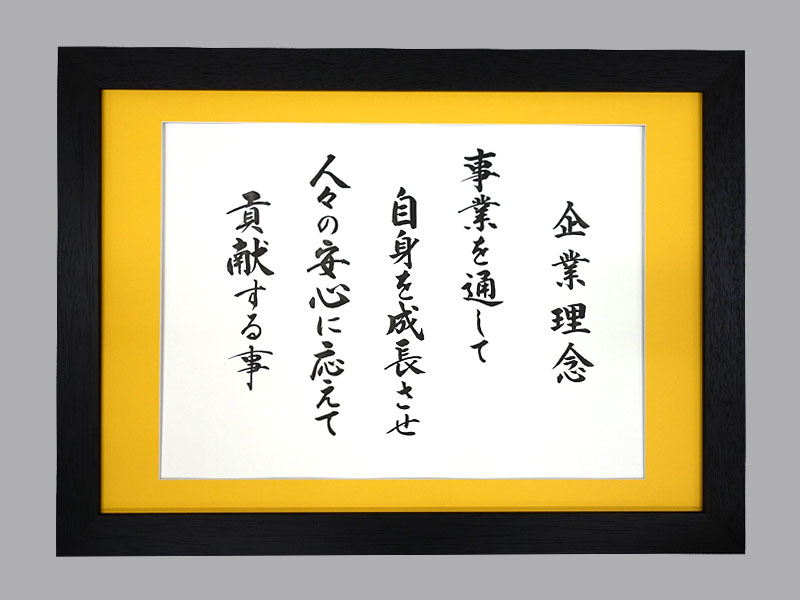 企業理念
事業を通して
自身を成長させ
人々の安心に応えて
貢献する事